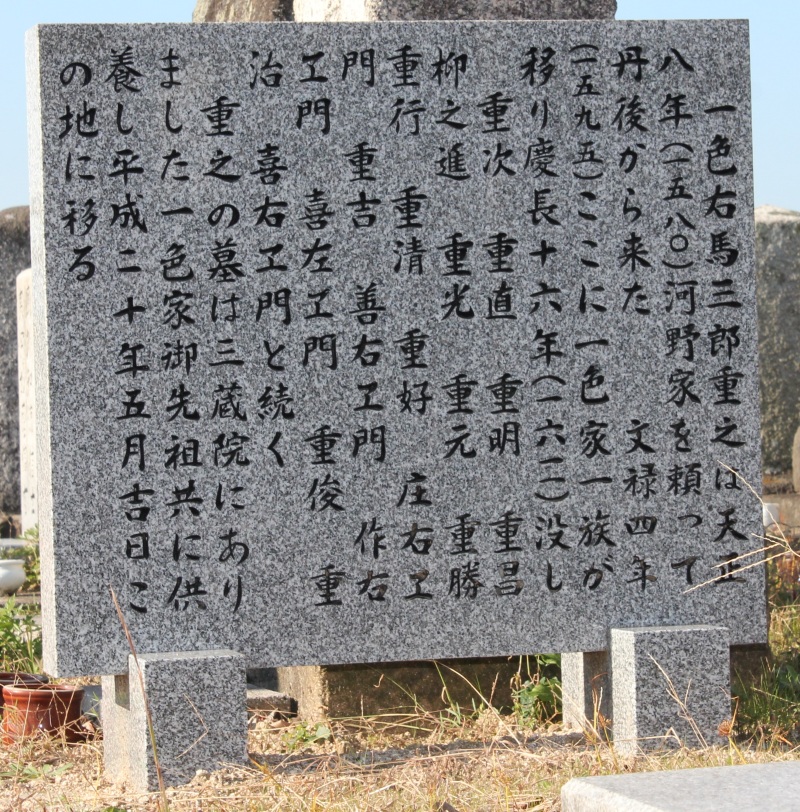 一色右馬三郎重之は天正
八年(一五八〇)河野家を頼って
丹後から来た　文禄四年
(一五九五)ここに一色家一族が
移り慶長十六年(一六一一)没し
重次　重直　重明　重昌
柳之進　重光　重元　重勝
重行　重清　重好　庄右ヱ
門　重吉　善右ヱ門　作右
ヱ門　喜左ヱ門　重俊　重
治　喜右ヱ門と続く
重之の墓は三蔵院にあり
ました一色家御先祖共に供
養し平成二十年五月吉日こ
の地に移る